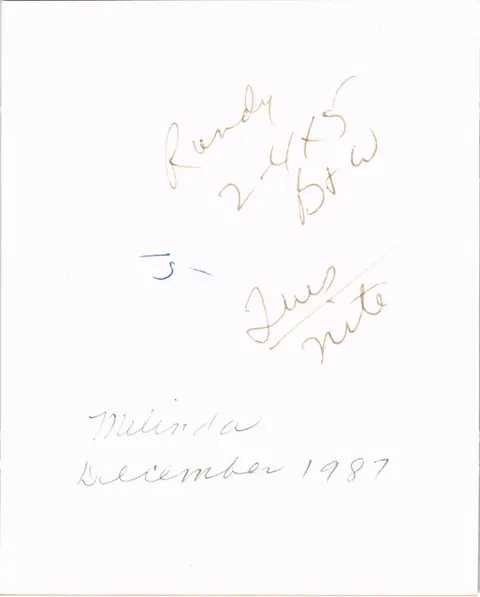 Randy
2-4x5
B+W
Tues
Nite
Melinda
December 1987